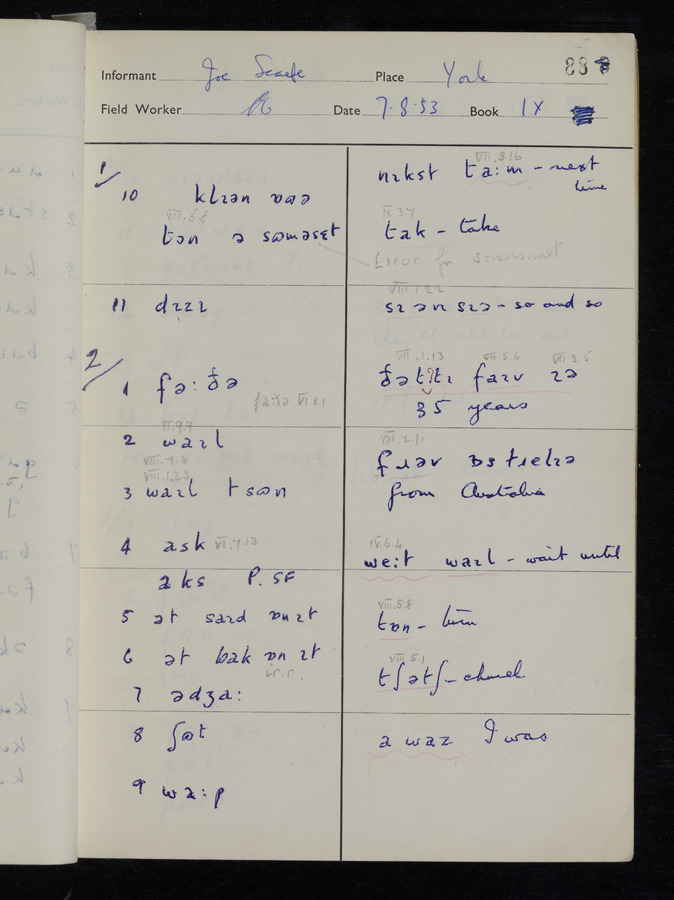 Informant Joe Place York 88
Field Worker Date 7.8.53 Book IX
1/
10 klɪən ɒəə
VIII.5.8
tən ə sɒməsɛt
11 dɪzɪ
2/
1 fə:ðə
fa:ðə VI 8 1
VI.9.9
2 waɪl
VIII.1.23
3 waɪl tsɒn
4 ask VI.7.13
aks P. SF
5 ət saɪd ɒn ɪt
6 ət bak ɒn ɪt
i.r.
7 ədʒa:
8 ʃɒt
9 wa:p
VII.3.16
nɪkst ta:m - next
time
IX.3.7
tak - take
Error for somersault
VIII.1.22
sɪ ən sɪə - so and so
VII.1.13 VII.5.6 VII.3.5
ðətɪ faɪv ɪə
35 years
VIII.2.11
fɹəv ɒstɹelɪə
from Australia
IV.6.4
we:t waɪl - wait until
VIII.5.8
tɒn - turn
VIII.5.1
tʃətʃ - church
a waz I was